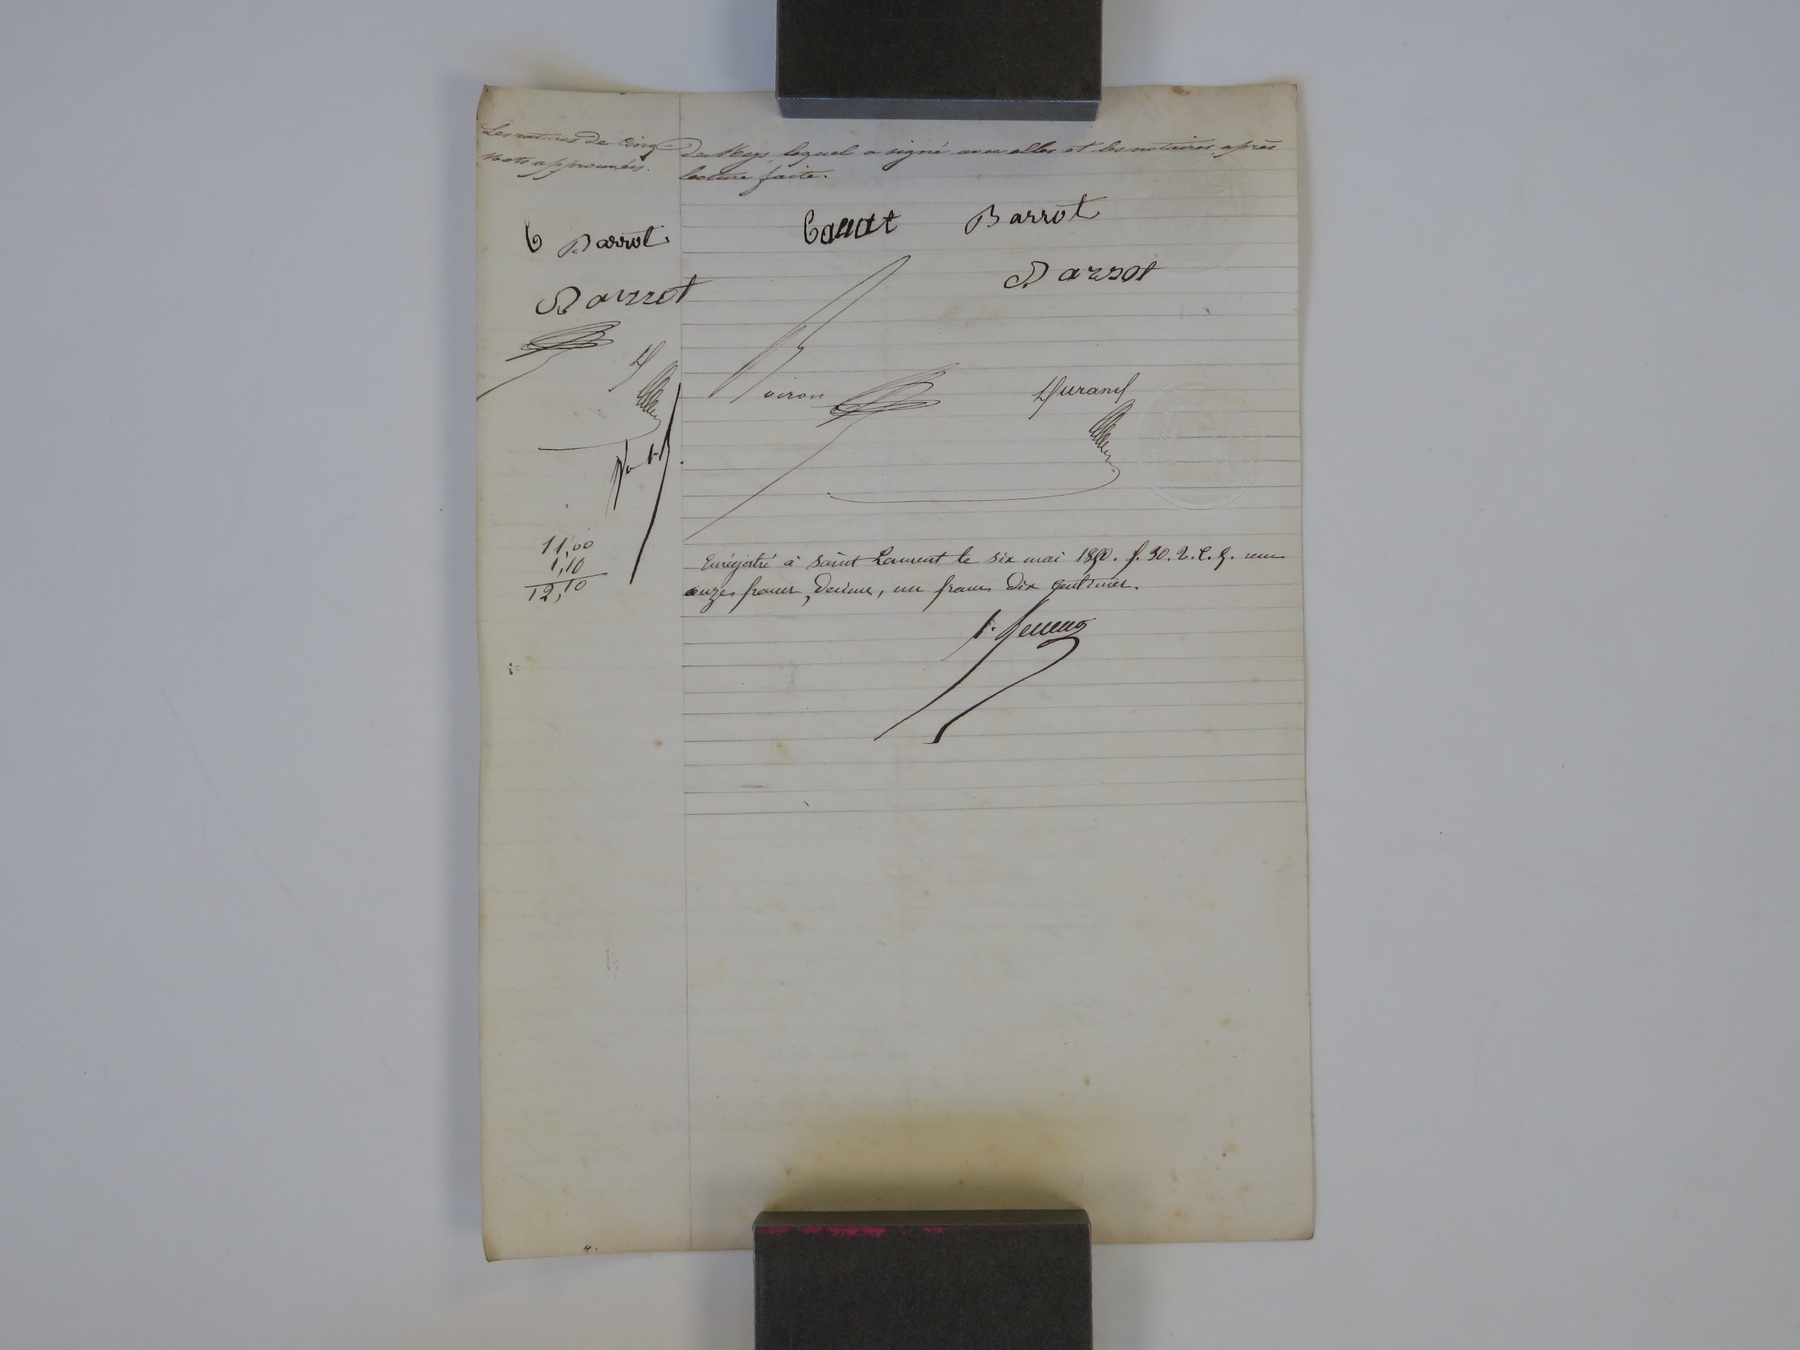 Les ratures de cinq
mots approuvées.
de Meys, lequel a signé avec elles et les notaires après
lecture faite.
C Barrot
Barrot
Barrot
Barrot
Durand
11,00
1,10
12,10
Enrégistré à Saint Laurent le six mai f. 30. reçu
onze francs, décime, un franc dix centimes.
4.